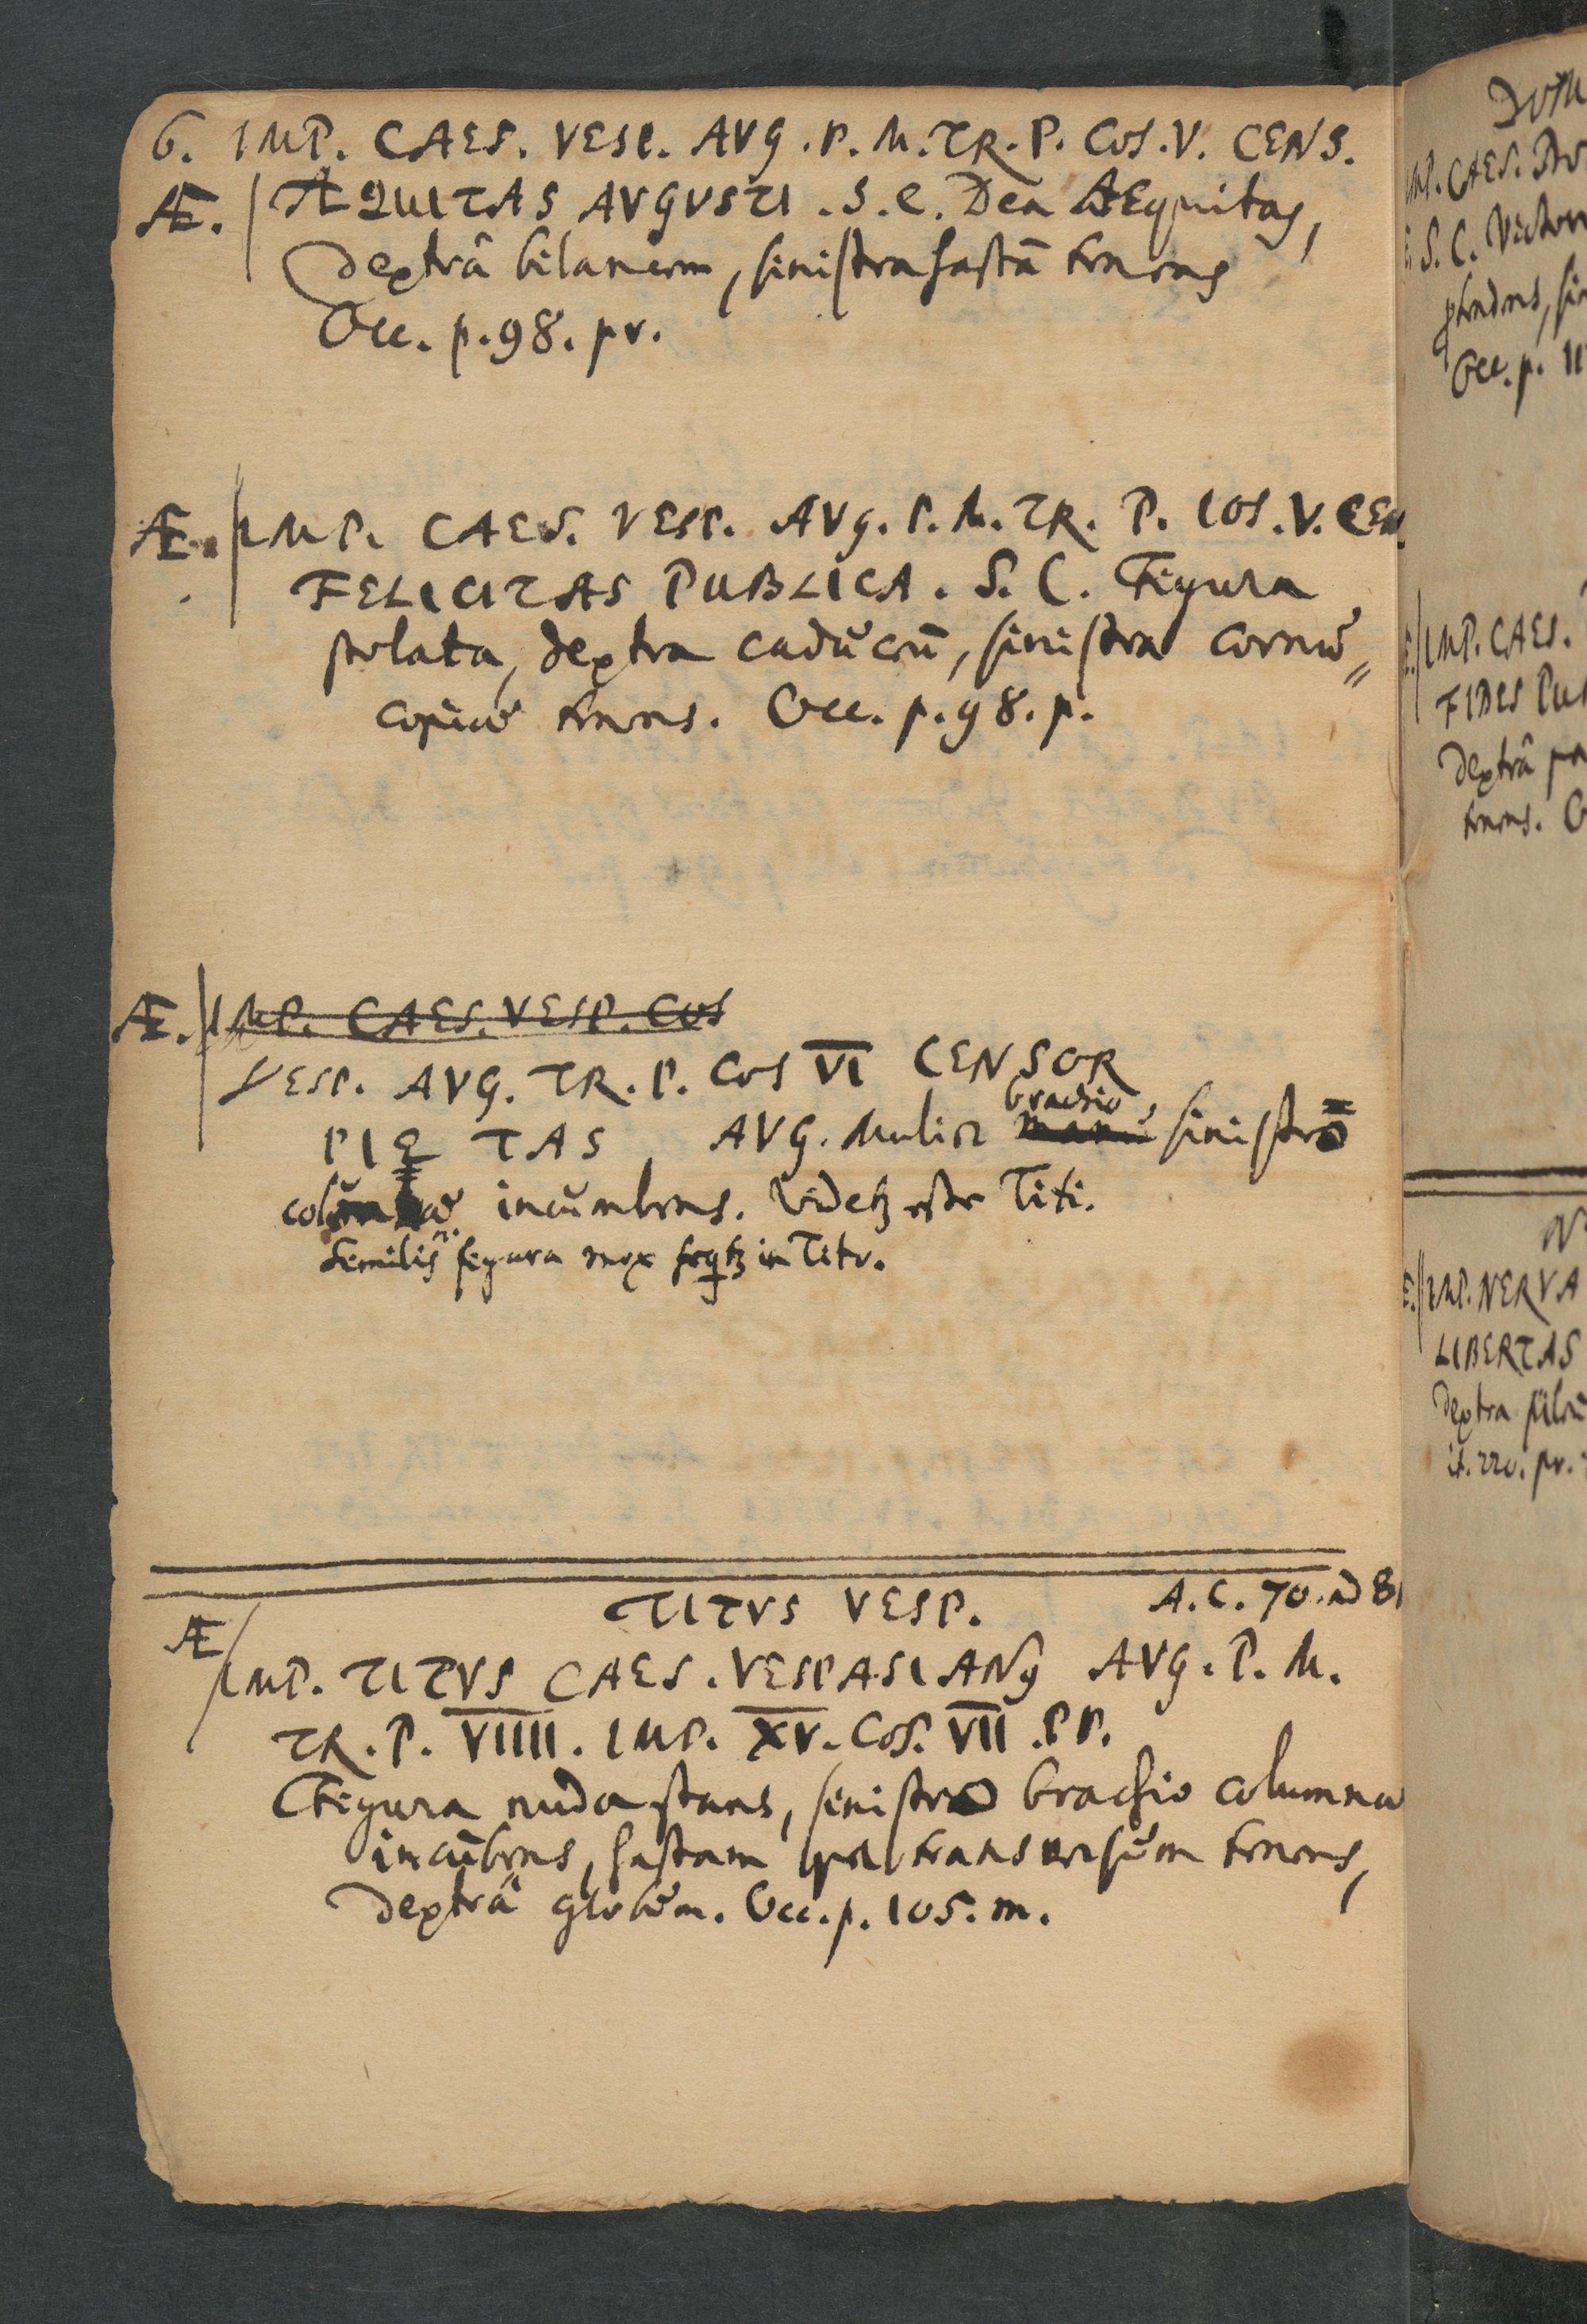 6. IMP. CAES. VESP. AVG. P. M. TR. P. COS. V. CENS.
Æ. ÆQUITAS AVGVSTI. S. C. Dea AEquitas,
dextrâ bilancem, sinistra hastā tenens
Occ. p. 98. pr.
Æ. IMP. CAES. VESP. AVG. P. M. TR. P. COS. V. CEN
FELICITAS PUBLICA. S. C. Figura
stolata, dextra caduceū, sinistra cornu
copiae tenens. Occ. p. 98. p.
Æ. IMP. CAES. VESP. COS
VESP. AVG. TR. P. COS VI CENSOR
brachio
PIETAS AVG. Mulier manu sinistro
columnae incumbens. Videtur esse Titi.
Similis figura mox seqtur in Tito.
TITVS VESP. A. C. 70. ad 81
Æ IMP. TITVS CAES. VESPASIANus AVG. P. M.
TR. P. VIIII. IMP. XV. COS. VII. PP.
Figura nuda stans, sinistro brachio columnae
incūbens, hastam transversum tenens,
dextrâ globum. Occ. p. 105. m.
DOM
IMP. CAES. DO
S. C. Victor
Occ. p. 11
IMP. CAES.
FIDES PU
dextrâ
tenens. O
N
IMP. NERVA
LIBERTAS
dextra pileū
it. 220. pr.